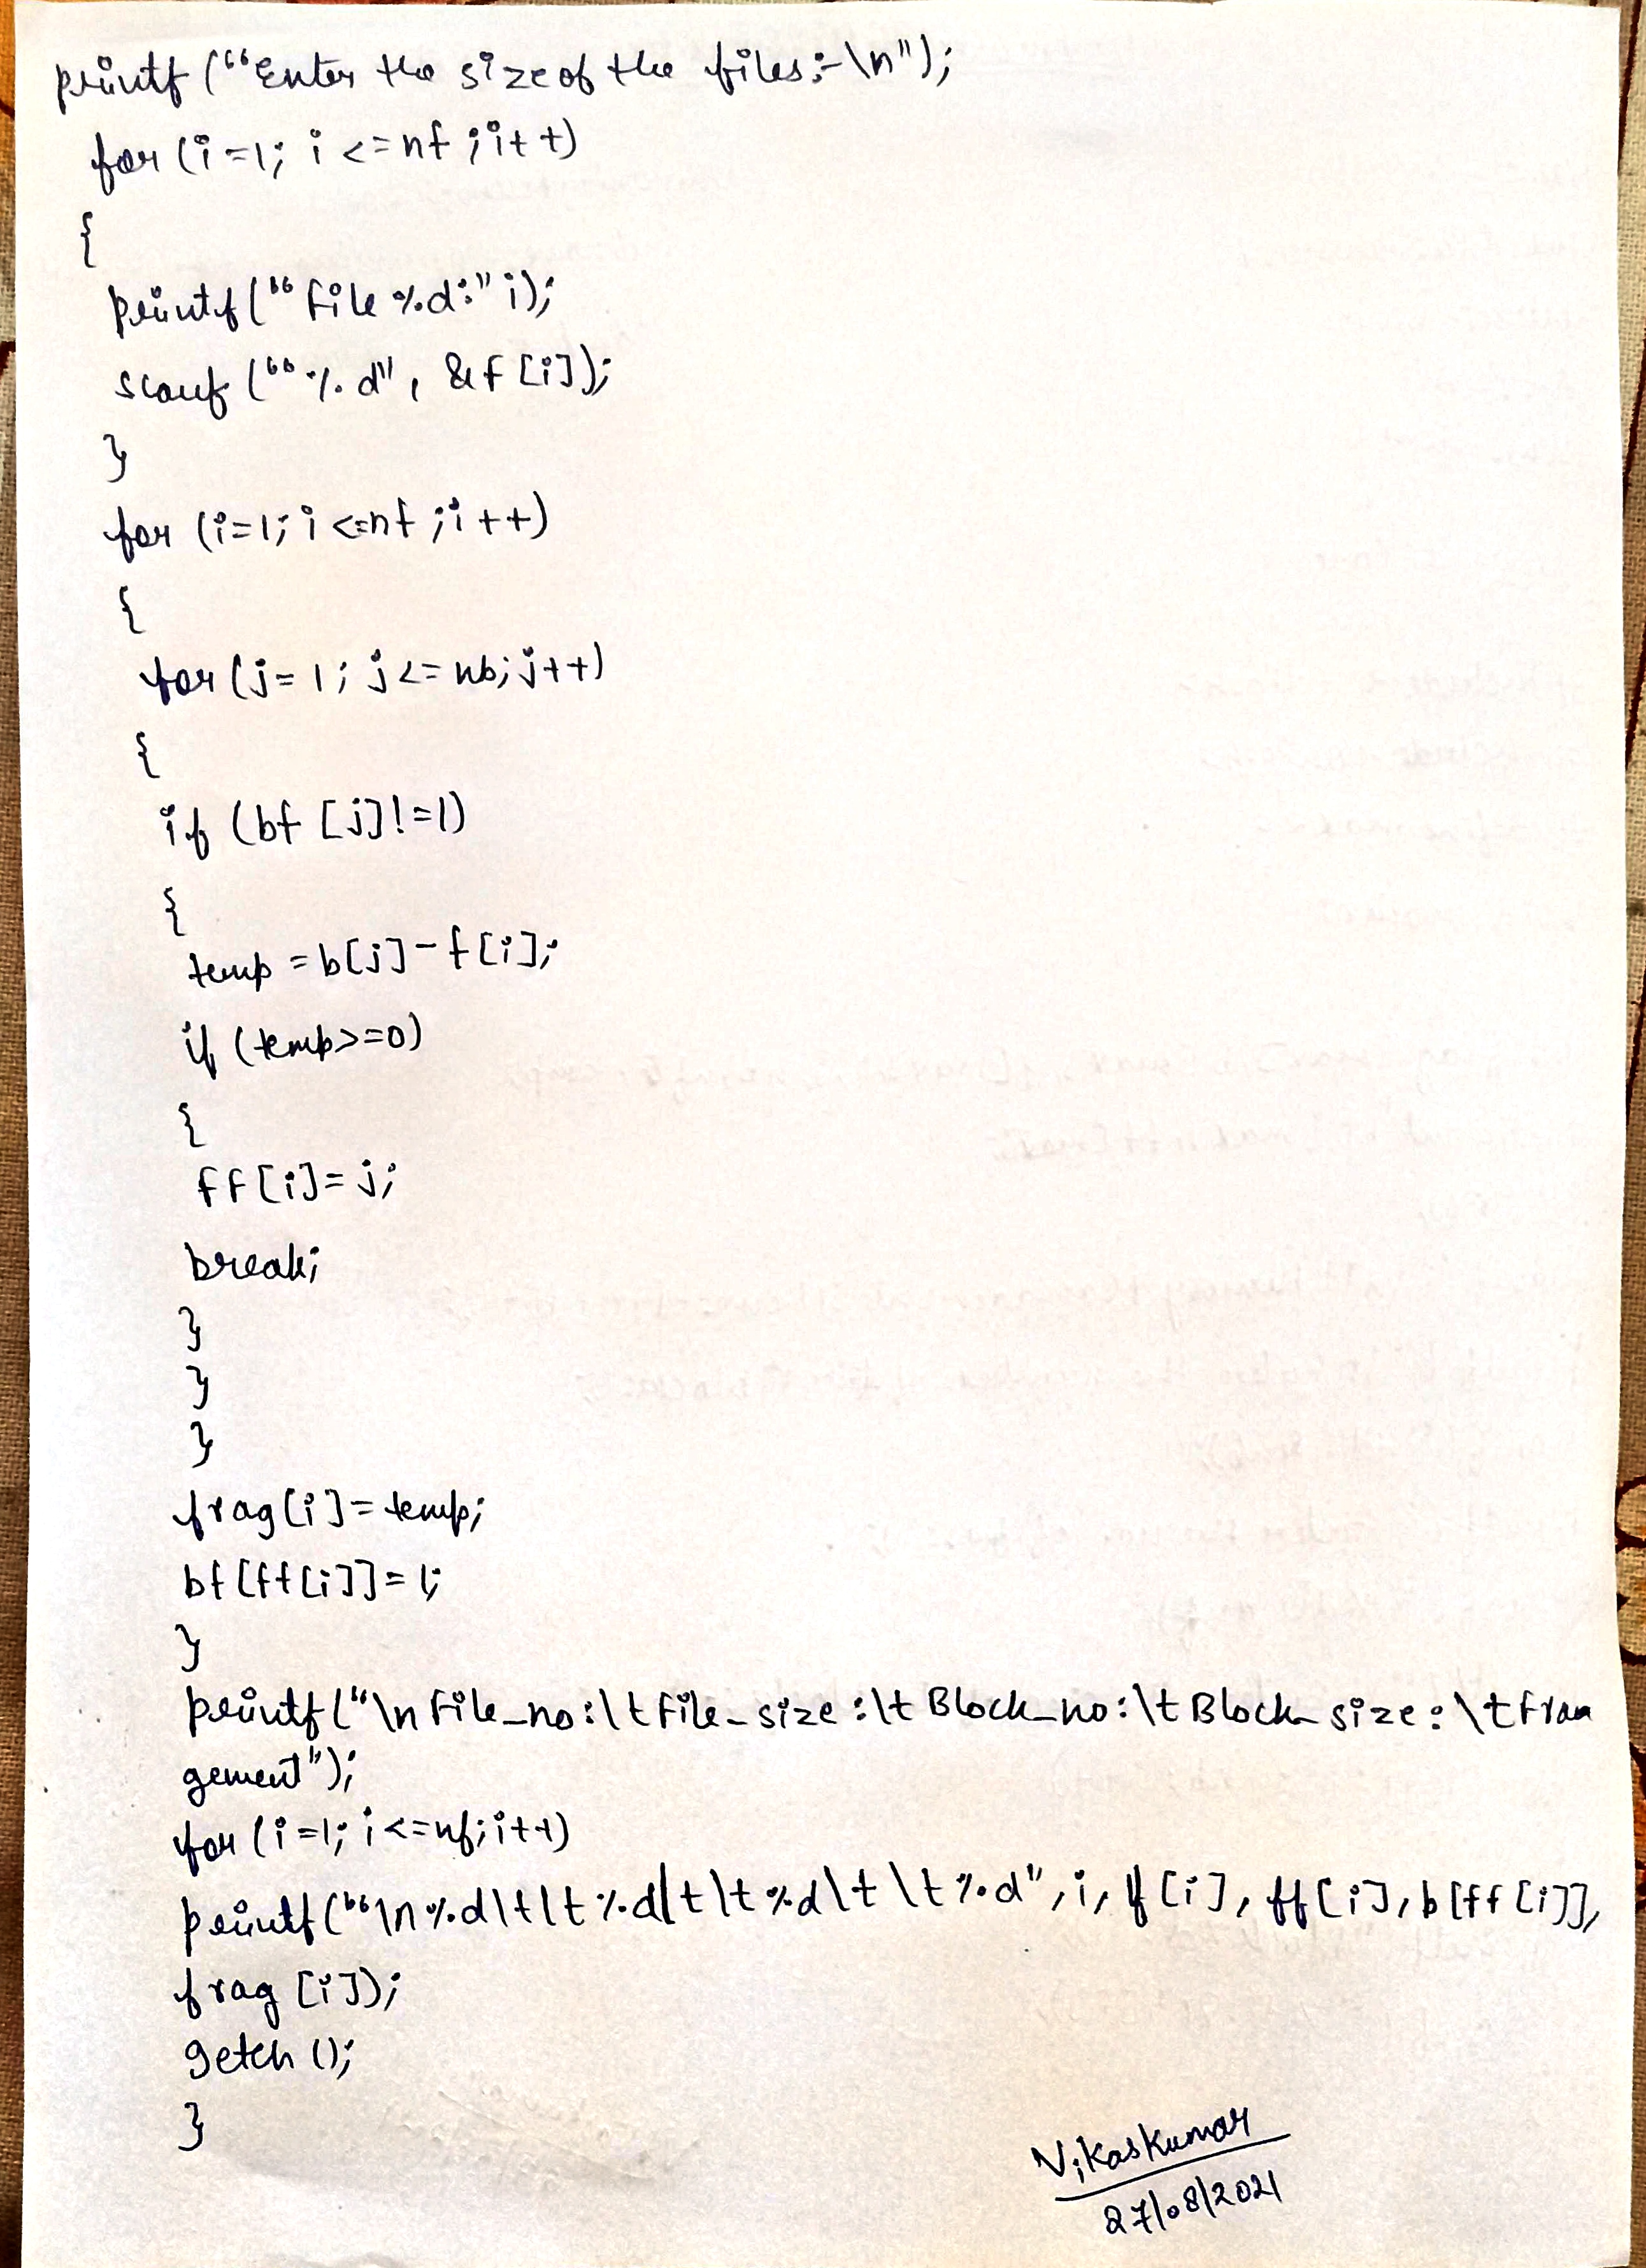 printf ("Enter the size of the files:-\n");
for (i=1; i<=nf; i++)
{
printf("File %d:" i);
scanf ("%d", &f[i]);
}
for (i=1; i<=nf; i++)
{
for (j=1; j<=nb; j++)
{
if (bf[j]!=1)
{
temp = b[j]-f[i];
if (temp>=0)
{
ff[i]=j;
break;
}
}
}
frag[i]=temp;
bf[ff[i]]=1;
}
printf("\n File_no:\t File_size :\t Block_no:\t Block_size:\t Fran
gement");
for (i=1; i<=nf; i++)
printf("\n%d\t\t%d\t\t%d\t\t%d", i, f[i], ff[i], b[ff[i]],
frag [i]);
getch ();
}
Vikas Kumar
27/08/2021